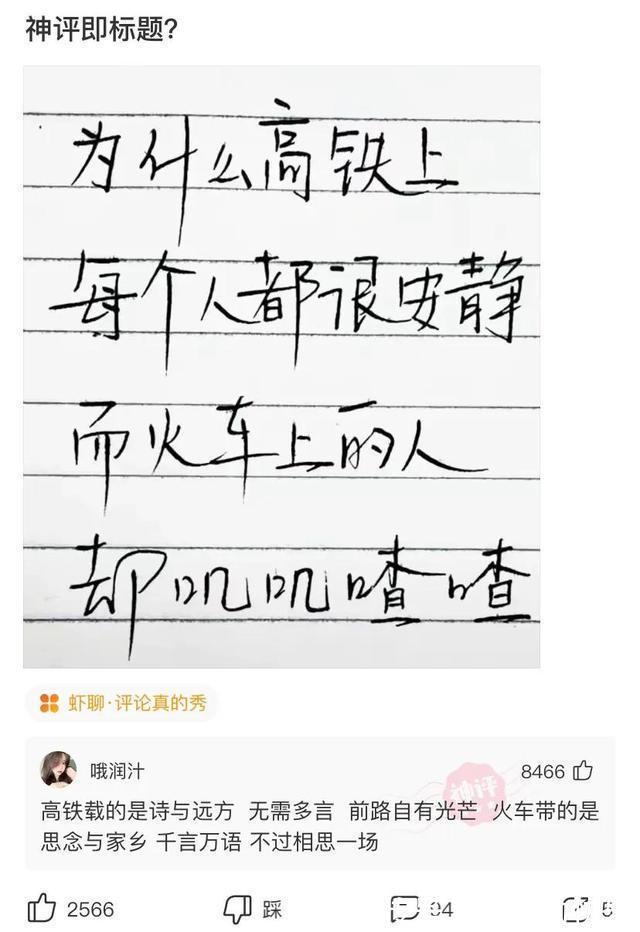 神评即标题?
为什么高铁上
每个人都很安静
而火车上的人
却叽叽喳喳
虾聊·评论真的秀
哦润汁
8466
神评
高铁载的是诗与远方 无需多言 前路自有光芒 火车带的是
思念与家乡 千言万语 不过相思一场
2566
踩